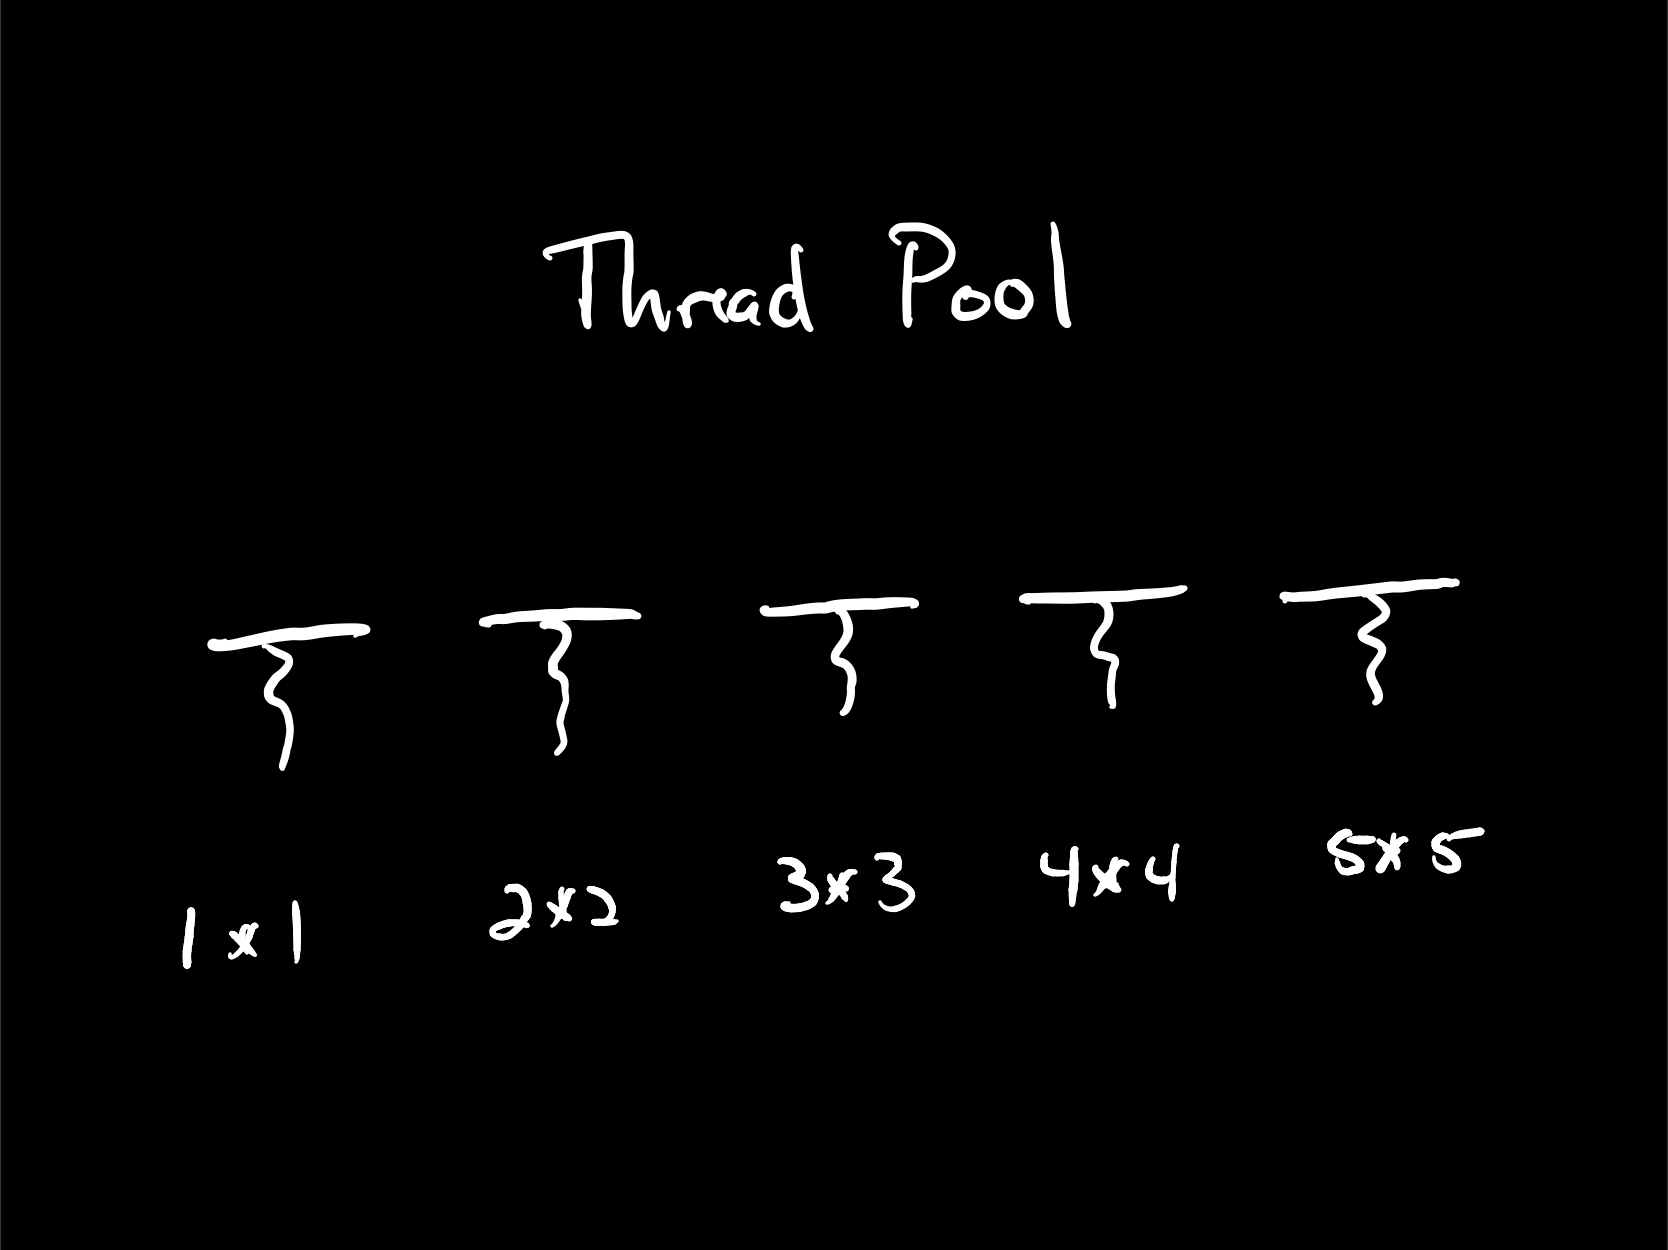 Thread Pool
1*1 2*2 3*3 4*4 5*5